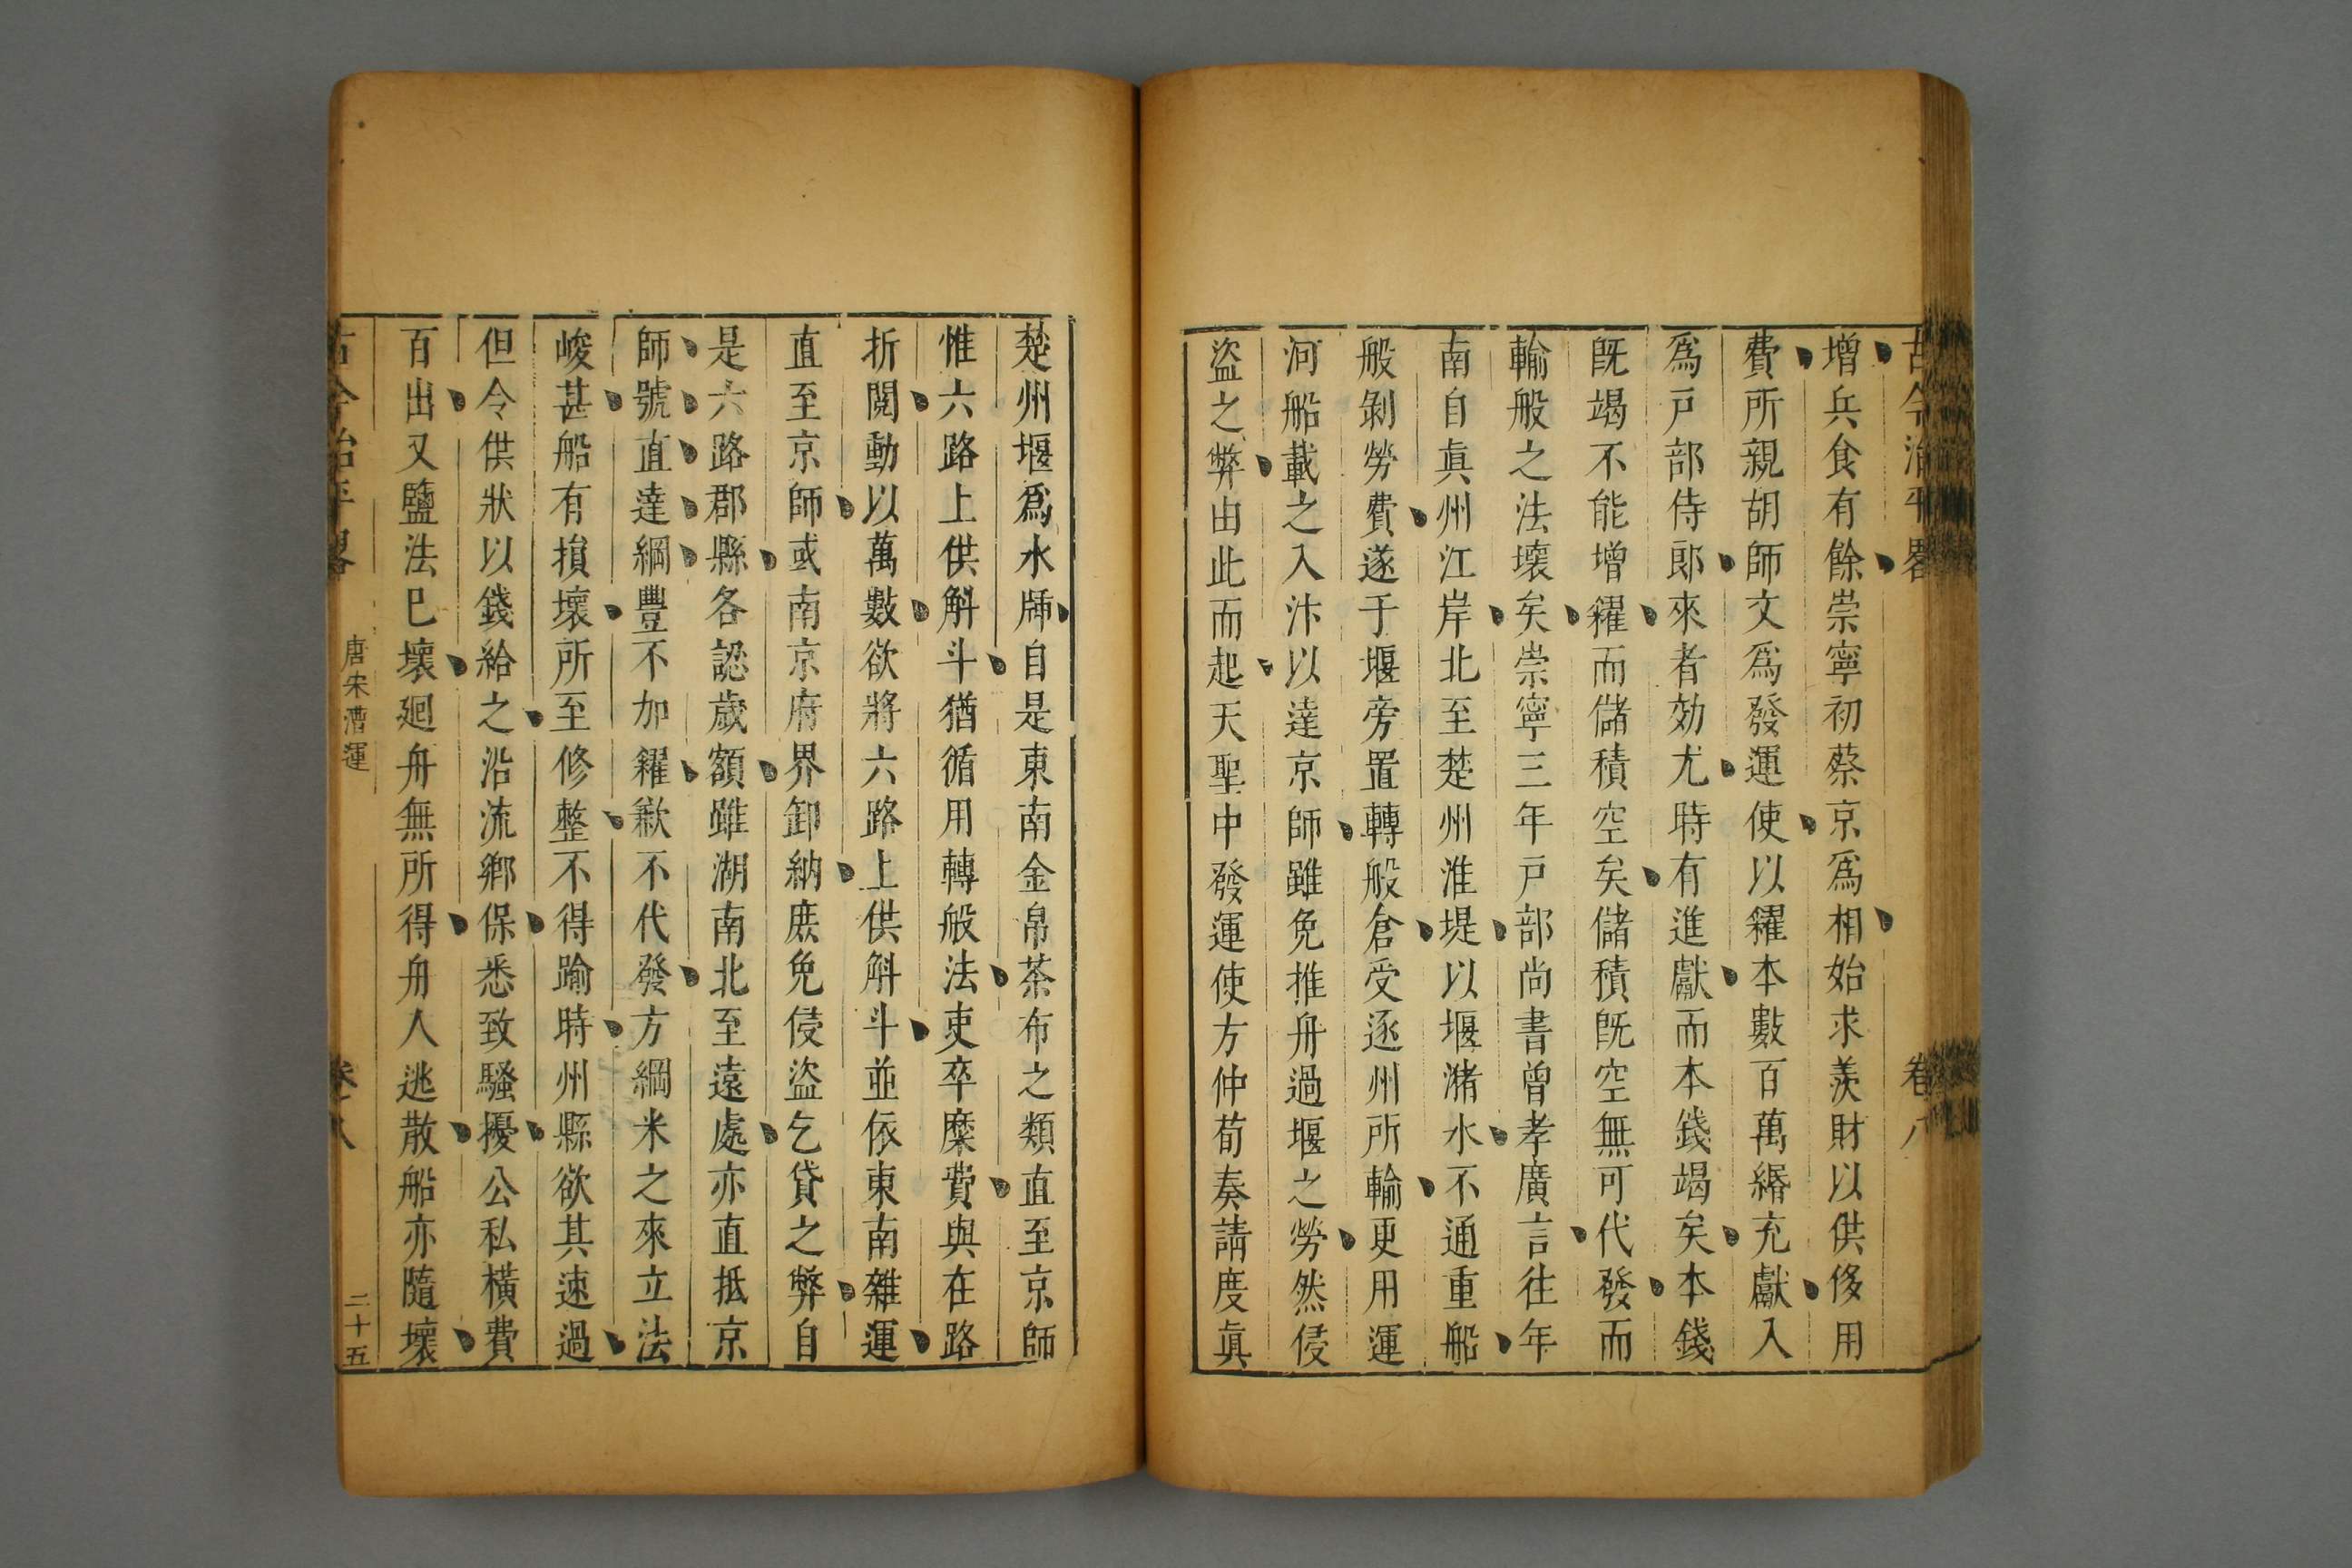 古今治平畧 卷八
增兵食有餘崇寧初蔡京為相始求羨財以供侈用
費所親胡師文爲發運使以糴本數百萬緡充獻入
爲戸部侍郎來者効尤時有進獻而本錢竭矣本錢
旣竭不能增糴而儲積空矣儲積旣空無可代發而
輸般之法壞矣崇寧三年戸部尚書曾孝廣言往年
南自眞州江岸北至楚州淮堤以堰潴水不通重船
般剝勞費遂于堰旁置轉般倉受逐州所輸更用運
河船載之入汴以達京師雖免推舟過堰之勞然侵
盜之弊由此而起天聖中發運使方仲荀奏請度眞
楚州堰爲水牐自是東南金帛茶布之類直至京師
惟六路上供斛斗猶循用轉般法吏卒糜費與在路
折閱動以萬數欲將六路上供斛斗並依東南雜運
直至京師或南京府界卸納庶免侵盜乞貸之弊自
是六路郡縣各認歲額雖湖南北至遠處亦直抵京
師號直達綱豐不加糴歉不代發方綱米之來立法
峻甚船有損壞所至修整不得踰時州縣欲其速過
但令供狀以錢給之沿流鄉保悉致騷擾公私橫費
百出又鹽法巳壞廻舟無所得舟人逃散船亦隨壞
古今治平畧 唐宋漕運 卷八 二十五